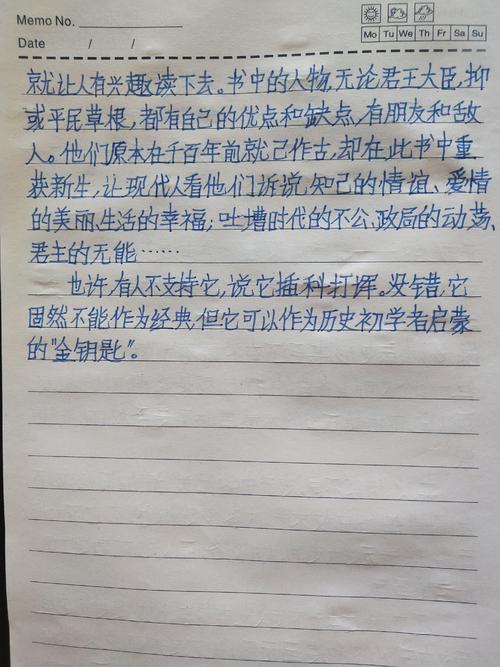 Memo No.
Date / /
Mo Tu We Th Fr Sa Su
就让人有兴趣读下去。书中的人物,无论君王大臣,抑
或平民草根,都有自己的优点和缺点,有朋友和敌
人。他们原本在千百年前就已作古,却在此书中重
获新生,让现代人看他们诉说知己的情谊、爱情
的美丽、生活的幸福;吐槽时代的不公、政局的动荡、
君主的无能……
也许,有人不支持它,说它插科打诨。没错,它
固然不能作为经典,但它可以作为历史初学者启蒙
的"金钥匙"。